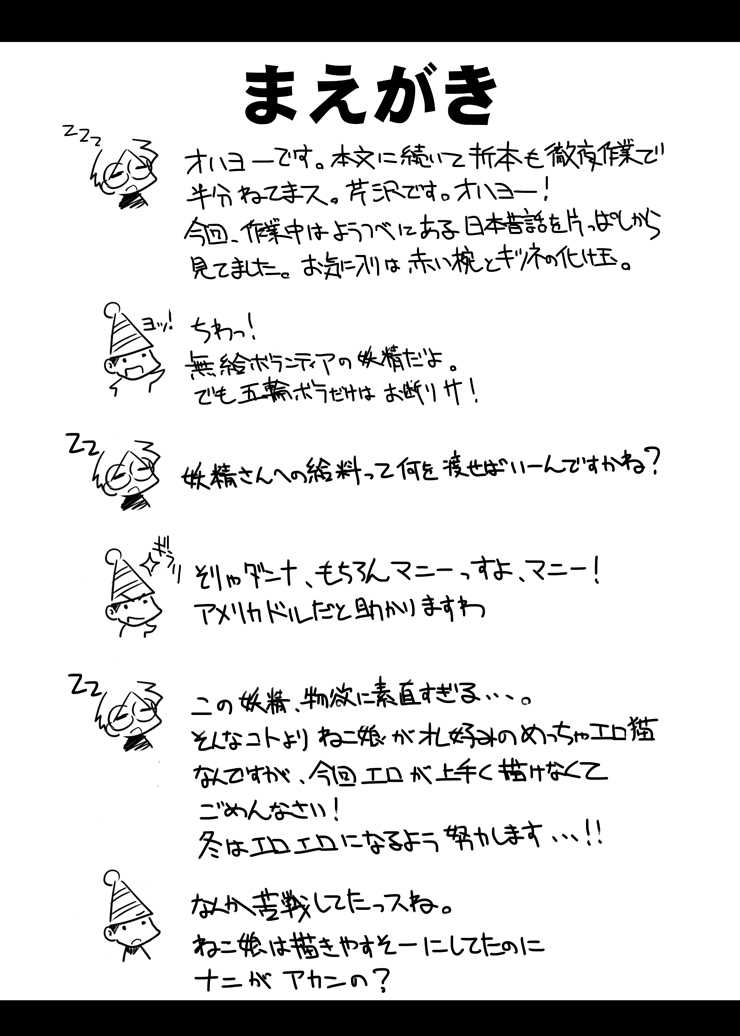 まえがき
ZZZ
オハヨーです。本文に続いて折本も徹夜作業で
半分ねてまス。芹沢です。オハヨー!
今回、作業中はようつべにある日本昔話を片っぱしから
見てました。お気に入りは赤い椀とキツネの化け玉。
ヨッ!
ちわっ!
無給ボランティアの妖精だよ。
でも五輪ボラだけはお断りサ!
ZZ
妖精さんへの給料って何を渡せばいーんですかね?
ギラリ
そりゃダンナ、もちろんマニーっすよ、マニー!
アメリカドルだと助かりますわ
ZZ
この妖精、物欲に素直すぎる・・・。
そんなコトよりねこ娘が 好みのめっちゃエロ猫
なんですが、今回エロが上手く描けなくて
ごめんなさい!
冬はエロエロになるよう努力します・・・!!
なんか苦戦してたっスね。
ねこ娘は描きやすそーにしてたのに
ナニがアカンの?